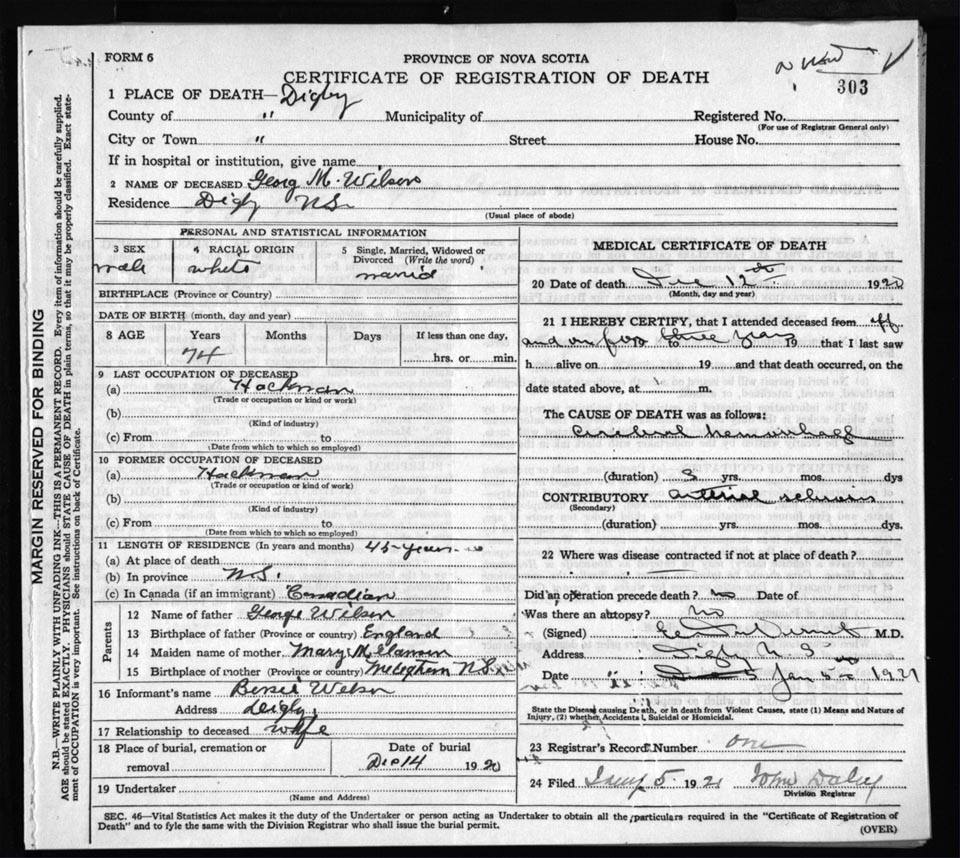 FORM 6
PROVINCE OF NOVA SCOTIA
CERTIFICATE OF REGISTRATION OF DEATH
303
1 PLACE OF DEATH— Digby
County of " Municipality of Registered No.
(For use of Registrar General only)
City or Town " Street House No.
If in hospital or institution, give name
2 NAME OF DECEASED Georg M. Wilson
Residence Digby NS.
(Usual place of abode)
PERSONAL AND STATISTICAL INFORMATION
3 SEX
male
4 RACIAL ORIGIN
white
5 Single, Married, Widowed or Divorced (Write the word)
married
BIRTHPLACE (Province or Country)
DATE OF BIRTH (month, day and year)
8 AGE Years Months Days If less than one day,
74 hrs. or min.
9 LAST OCCUPATION OF DECEASED
(a) Hackman
(Trade or occupation or kind or work)
(b)
(Kind of industry)
(c) From to
(Date from which to which so employed)
10 FORMER OCCUPATION OF DECEASED
(a) Hackman
(Trade or occupation or kind of work)
(b)
(Kind of industry)
(c) From to
(Date from which to which so employed)
11 LENGTH OF RESIDENCE (In years and months) 45 years
(a) At place of death
(b) In province N.S.
(c) In Canada (if an immigrant) Canadian
Parents
12 Name of father George Wilson
13 Birthplace of father (Province or country) England
14 Maiden name of mother Mary
15 Birthplace of mother (Province or country) Meteghan N.S.
16 Informant's name Bessie Wilson
Address Digby
17 Relationship to deceased wife
18 Place of burial, cremation or removal
Date of burial
Dec 14 1920
19 Undertaker
(Name and Address)
MEDICAL CERTIFICATE OF DEATH
20 Date of death Dec 12th 1920
(Month, day and year)
21 I HEREBY CERTIFY, that I attended deceased from off
and on for to three years 19 that I last saw
h alive on 19 and that death occurred, on the
date stated above, at m.
The CAUSE OF DEATH was as follows:
Cerebral hemorrhage
(duration) 3 yrs. mos. dys
CONTRIBUTORY arterial sclerosis
(Secondary)
(duration) yrs. mos. dys.
22 Where was disease contracted if not at place of death?
Did an operation precede death? no Date of
Was there an autopsy? No
(Signed) M.D.
Address Digby N.S.
Date Jan 5th 1921
State the Disease causing Death, or in death from Violent Causes, state (1) Means and Nature of
Injury, (2) whether Accidental, Suicidal or Homicidal.
23 Registrar's Record Number one
24 Filed Jany 5 1921 John Daley
Division Registrar
SEC. 46—Vital Statistics Act makes it the duty of the Undertaker or person acting as Undertaker to obtain all the particulars required in the "Certificate of Registration of
Death" and to fyle the same with the Division Registrar who shall issue the burial permit.
(OVER)
MARGIN RESERVED FOR BINDING
N.B.—WRITE PLAINLY WITH UNFADING INK—THIS IS A PERMANENT RECORD. Every item of information should be carefully supplied.
AGE should be stated EXACTLY. PHYSICIANS should STATE CAUSE OF DEATH in plain terms, so that it may be properly classified. Exact state-
ment of OCCUPATION is very important. See instructions on back of Certificate.